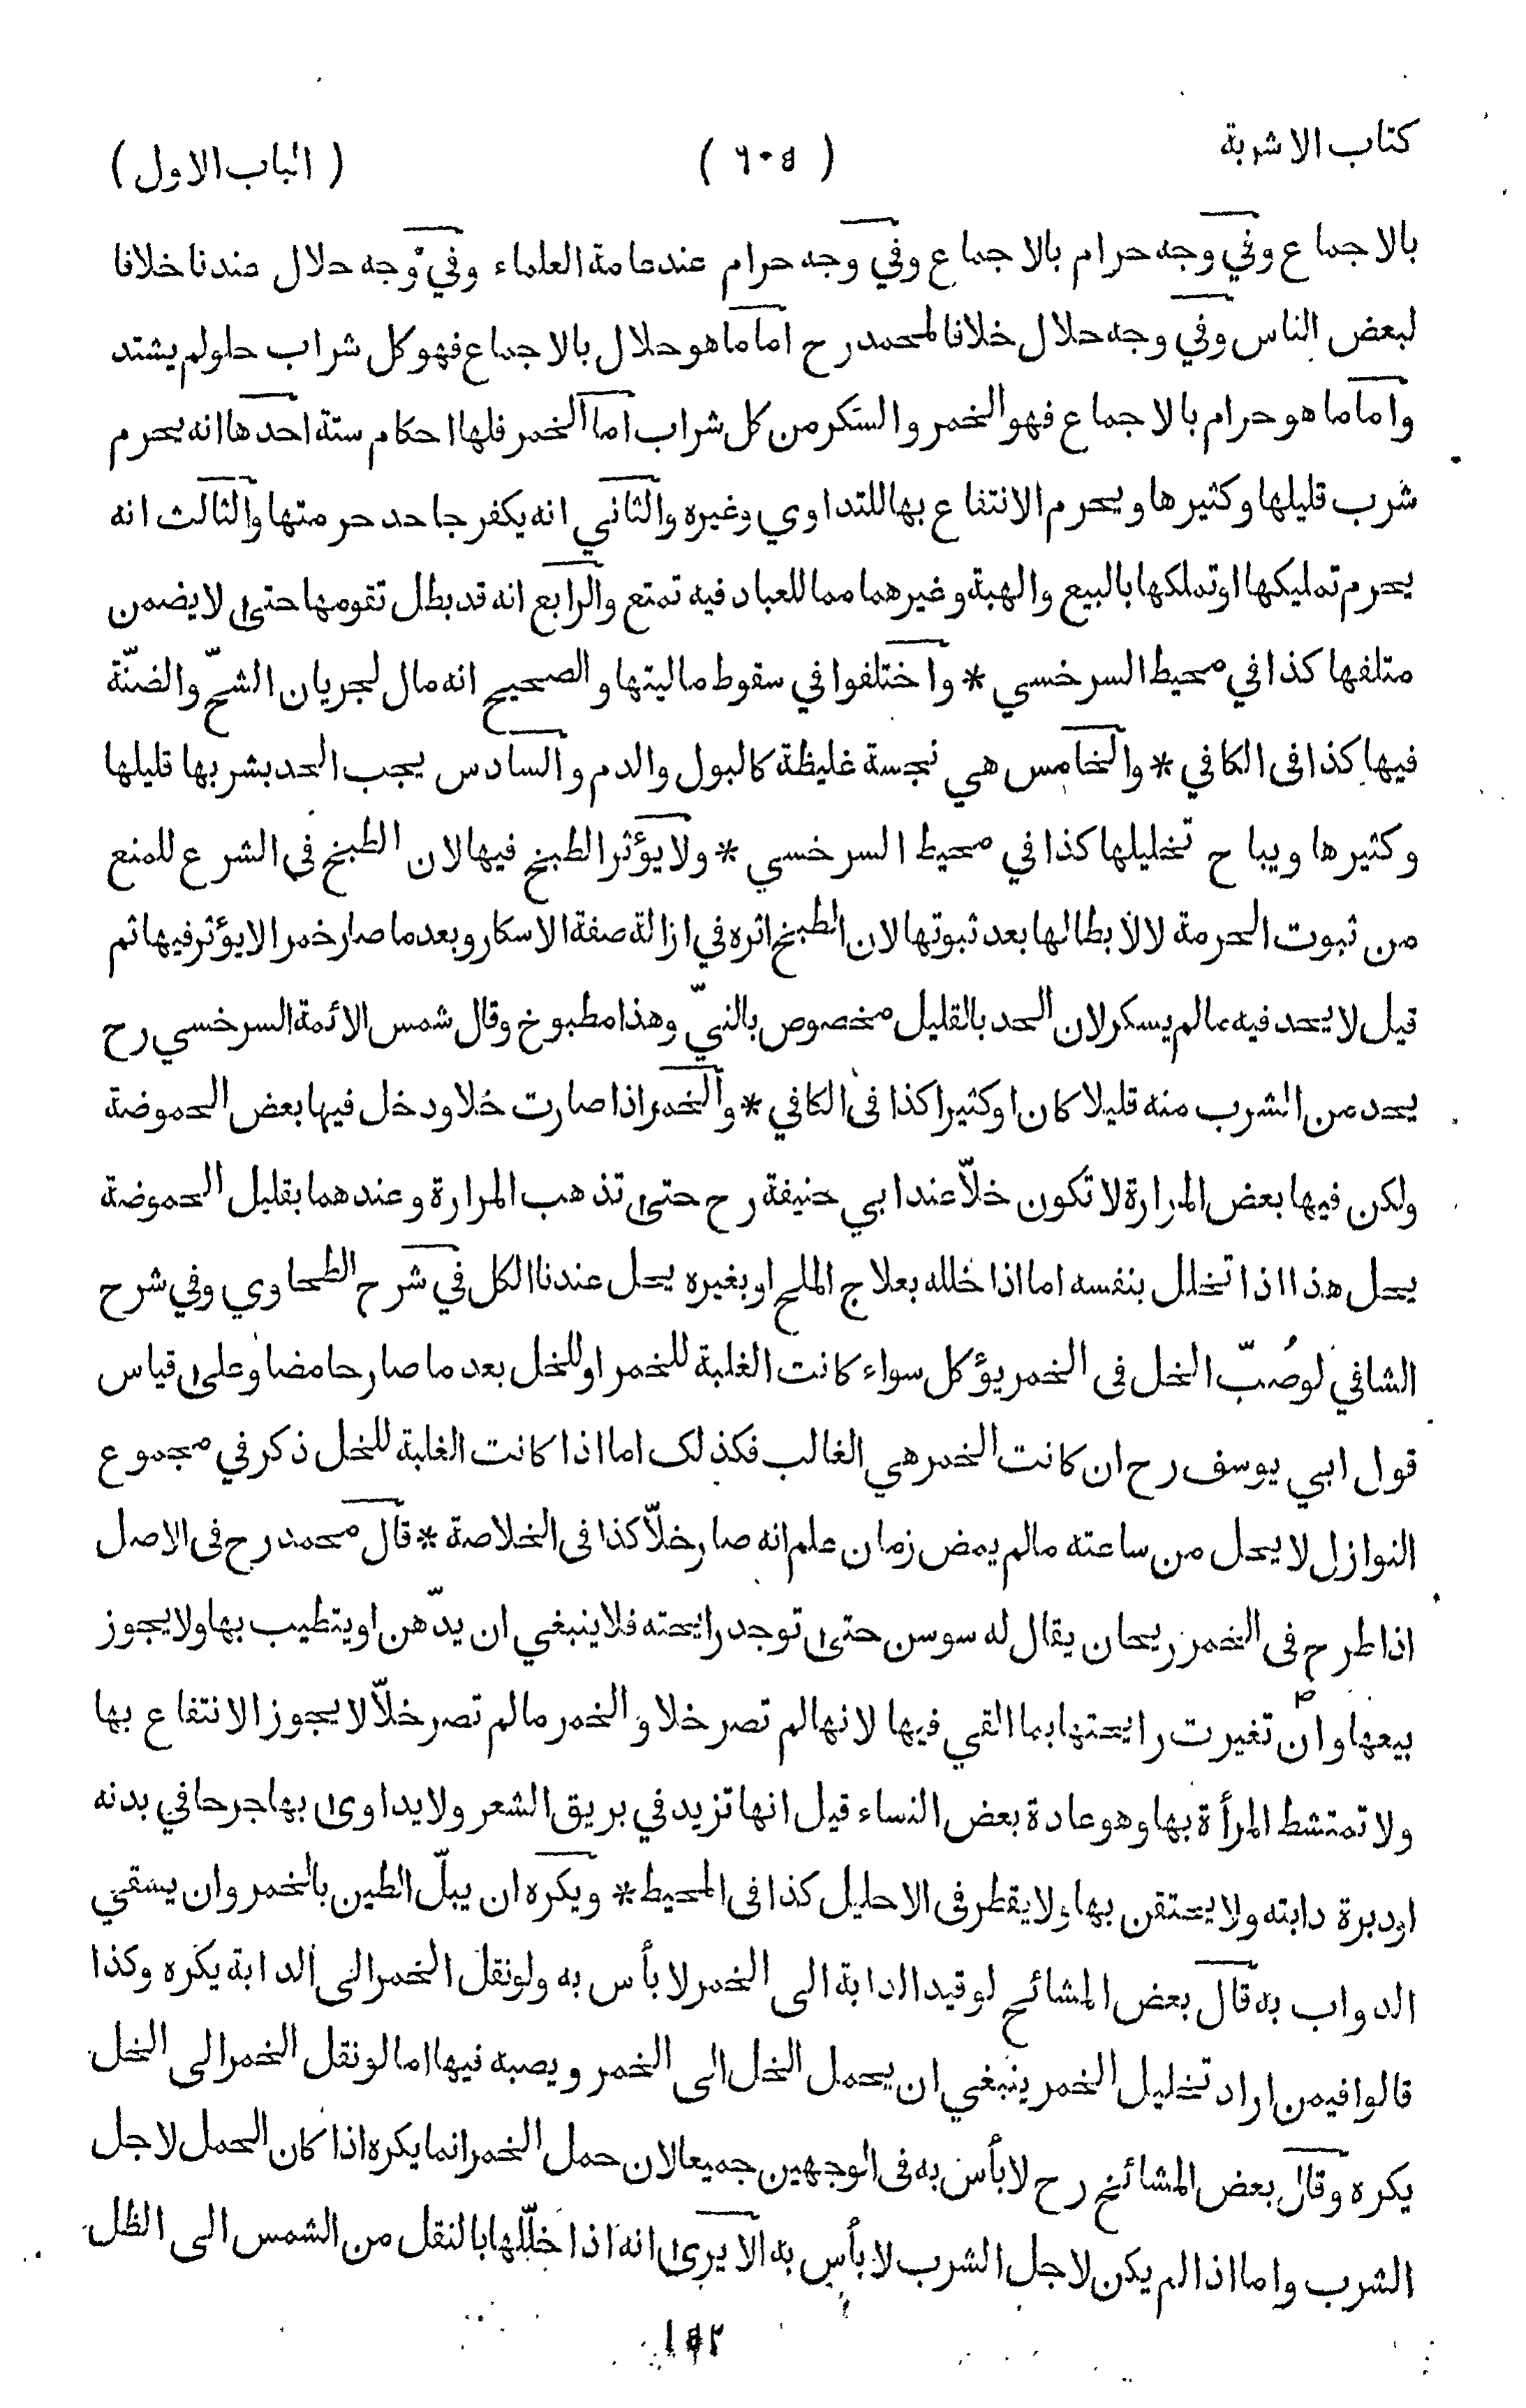 كتاب الاشربة
( ٦٠٥ )
( الباب الاول )
بالاجماع وفي وجه حرام بالاجماع وفي وجه حرام عند عامة العلماء وفي وجه حلال عندنا خلافا
لبعض الناس وفي وجه حلال خلافا لمحمد رح اما ما هو حلال بالاجماع فهو كل شراب حلو لم يشتد
واما ما هو حرام بالاجماع فهو الخمر والسكر من كل شراب اما الخمر فلها احكام ستة احدها انه يحرم
شرب قليلها وكثيرها ويحرم الانتفاع بها للتداوي وغيره والثاني انه يكفر جاحد حرمتها والثالث انه
يحرم تمليكها او تملكها بالبيع والهبة وغيرهما مما للعباد فيه تمتع والرابع انه قد بطل تقومها حتى لا يضمن
متلفها كذا في محيط السرخسي * واختلفوا في سقوط ماليتها والصحيح انه مال لجريان الشحّ والضنّة
فيها كذا فى الكافي * والخامس هي نجسة غليظة كالبول والدم والسادس يجب الحد بشربها قليلها
وكثيرها ويباح تخليلها كذا في محيط السرخسي * ولا يؤثر الطبخ فيها لان الطبخ فى الشرع للمنع
من ثبوت الحرمة لا لابطالها بعد ثبوتها لان الطبخ اثره في ازالة صفة الاسكار وبعد ما صار خمرا لا يؤثر فيها ثم
قيل لا يحد فيه ما لم يسكر لان الحد بالقليل مخصوص بالنيّ وهذا مطبوخ وقال شمس الائمة السرخسي رح
يحد من الشرب منه قليلا كان او كثيرا كذا فى الكافي * والخمر اذا صارت خلا ودخل فيها بعض الحموضة
ولكن فيها بعض المرارة لا تكون خلاّ عند ابي حنيفة رح حتى تذهب المرارة وعندهما بقليل الحموضة
يحل هذا اذا تخلل بنفسه اما اذا خلله بعلاج الملح او بغيره يحل عندنا الكل في شرح الطحاوي وفي شرح
الشافي لو صُبّ الخل فى الخمر يؤكل سواء كانت الغلبة للخمر او للخل بعد ما صار حامضا وعلى قياس
قول ابي يوسف رح ان كانت الخمر هي الغالب فكذلك اما اذا كانت الغلبة للخل ذكر في مجموع
النوازل لا يحل من ساعته ما لم يمض زمان علم انه صار خلاّ كذا فى الخلاصة * قال محمد رح فى الاصل
اذا طرح فى الخمر ريحان يقال له سوسن حتى توجد رايحته فلا ينبغي ان يدّهن او يتطيب بها ولا يجوز
بيعها وان تغيرت رايحتها بما القي فيها لانها لم تصر خلا و الخمر ما لم تصر خلاّ لا يجوز الانتفاع بها
ولا تمتشط المرأة بها وهو عادة بعض النساء قيل انها تزيد في بريق الشعر ولا يداوى بها جرحا في بدنه
او دبرة دابته ولا يحتقن بها ولا يقطر فى الاحليل كذا فى المحيط * ويكره ان يبلّ الطين بالخمر وان يسقي
الدواب به قال بعض المشائح لو قيد الدابة الى الخمر لا بأس به ولو نقل الخمر الى الدابة يكره وكذا
قالوا فيمن اراد تخليل الخمر ينبغي ان يحمل الخل الى الخمر ويصبه فيها اما لو نقل الخمر الى الخل
يكره وقال بعض المشائخ رح لا بأس به فى الوجهين جميعا لان حمل الخمر انما يكره اذا كان الحمل لاجل
الشرب واما اذا لم يكن لاجل الشرب لا بأس به الا يرى انه اذا خلّلها بالنقل من الشمس الى الظل
١٥٢